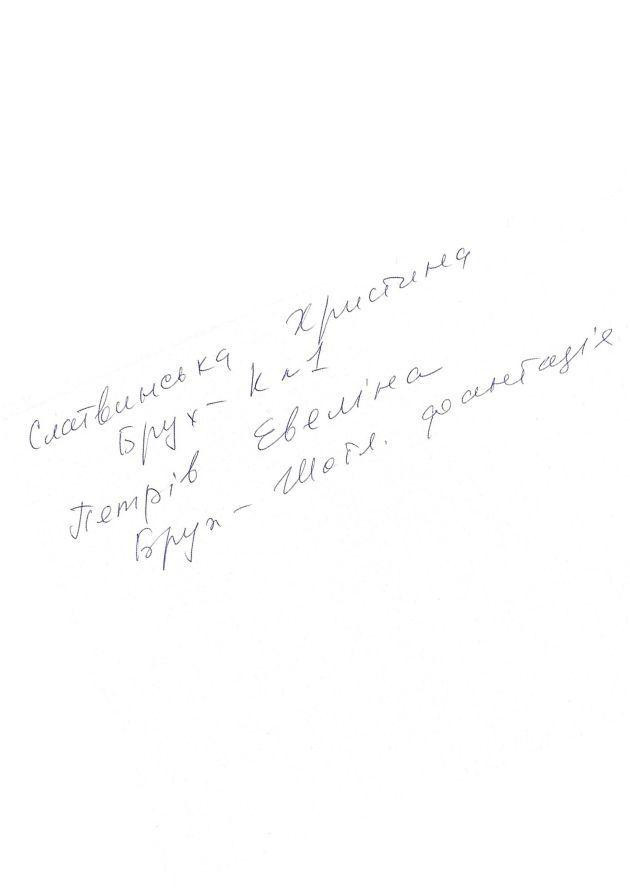 Слатвинська Христина
Брух - К №1
Петрів Евеліна
Брух - Шотл. фантазія